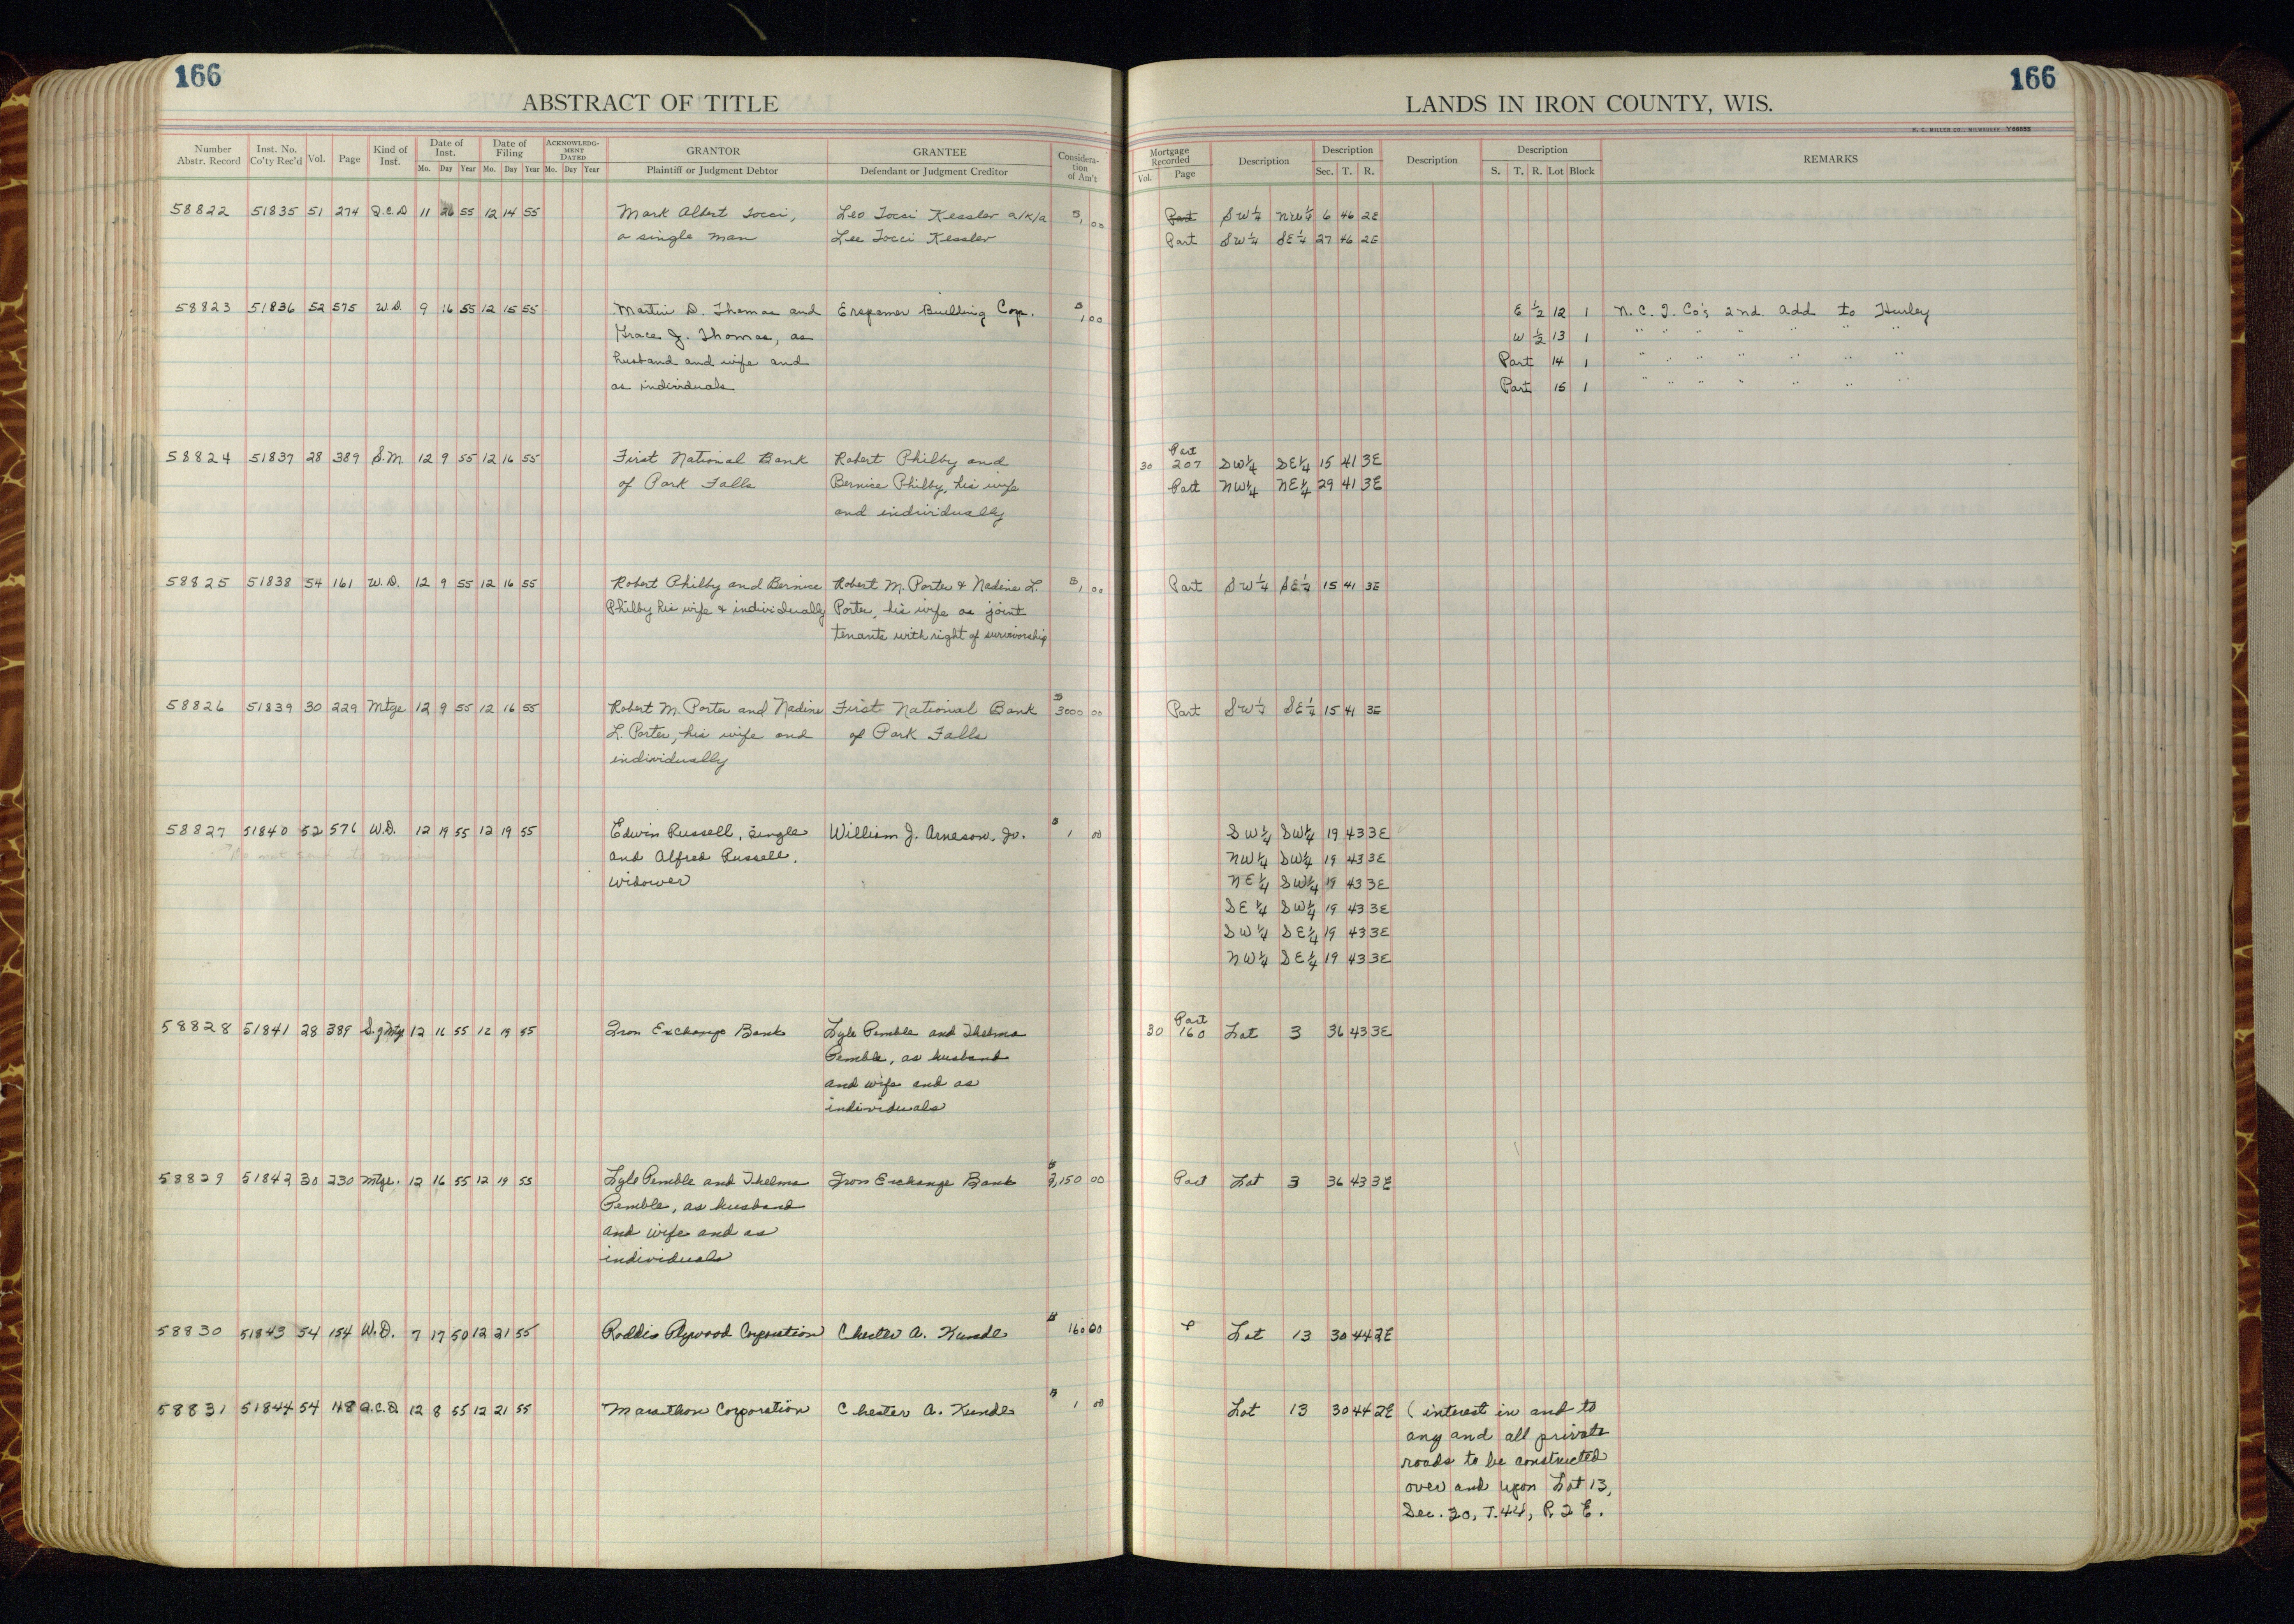 166
ABSTRACT OF TITLE
Number Abstr. Record | Inst. No. Co'ty Rec'd | Vol. | Page | Kind of Inst. | Date of Inst. Mo. Day Year | Date of Filing Mo. Day Year | ACKNOWLEDGMENT DATED Mo. Day Year | GRANTOR Plaintiff or Judgment Debtor | GRANTEE Defendant or Judgment Creditor | Consideration of Am't
58822 51835 51 274 Q.C.D 11 26 55 12 14 55 Mark Albert Tocci, Leo Tocci Kessler a/k/a $1,00
a single man Lee Tocci Kessler
58823 51836 52 575 W.D. 9 16 55 12 15 55 Martin D. Thomas and Erspamer Building Corp. $1,00
Grace J. Thomas, as
husband and wife and
as individuals
58824 51837 28 389 S.M. 12 9 55 12 16 55 First National Bank Robert Philby and
of Park Falls Bernice Philby, his wife
and individually
58825 51838 54 161 W.D. 12 9 55 12 16 55 Robert Philby and Bernice Robert M. Porter & Nadine L. $1 00
Philby his wife & individually Porter, his wife as joint
tenants with right of survivorship
58826 51839 30 229 Mtge 12 9 55 12 16 55 Robert M. Porter and Nadine First National Bank $3000 00
L. Porter, his wife and of Park Falls
individually
58827 51840 52 576 W.D. 12 19 55 12 19 55 Edwin Russell, single William J. Arneson, Jr. $1 00
and Alfred Russell,
widower
58828 51841 28 389 S. of Mtg 12 16 55 12 19 55 Iron Exchange Bank Lyle Pemble and Thelma
Pemble, as husband
and wife and as
individuals
58829 51842 30 230 Mtge. 12 16 55 12 19 55 Lyle Pemble and Thelma Iron Exchange Bank $2,150 00
Pemble, as husband
and wife and as
individuals
58830 51843 54 154 W.D. 7 17 50 12 21 55 Roddis Plywood Corporation Chester A. Kundl $160 00
58831 51844 54 148 Q.C.D. 12 8 55 12 21 55 Marathon Corporation Chester A. Kundl $1 00
166
LANDS IN IRON COUNTY, WIS.
H. C. MILLER CO., MILWAUKEE Y66055
Mortgage Recorded Vol. Page | Description | Description Sec. T. R. | Description | Description S. T. R. Lot Block | REMARKS
Part SW¼ NW¼ 6 46 2E
Part SW¼ SE¼ 27 46 2E
E ½ 12 1 N.C.I. Co's 2nd. Add to Hurley
W ½ 13 1 " " " " " " "
Part 14 1 " " " " " " "
Part 15 1 " " " " " " "
Part
30 207 SW¼ SE¼ 15 41 3E
Part NW¼ NE¼ 29 41 3E
Part SW¼ SE¼ 15 41 3E
Part SW¼ SE¼ 15 41 3E
SW¼ SW¼ 19 43 3E
NW¼ SW¼ 19 43 3E
NE¼ SW¼ 19 43 3E
SE¼ SW¼ 19 43 3E
SW¼ SE¼ 19 43 3E
NW¼ SE¼ 19 43 3E
Part
30 160 Lot 3 36 43 3E
Part Lot 3 36 43 3E
P Lot 13 30 44 2E
Lot 13 30 44 2E ( interest in and to
any and all private
roads to be constructed
over and upon Lot 13,
Sec. 30, T.44, R 2 E.